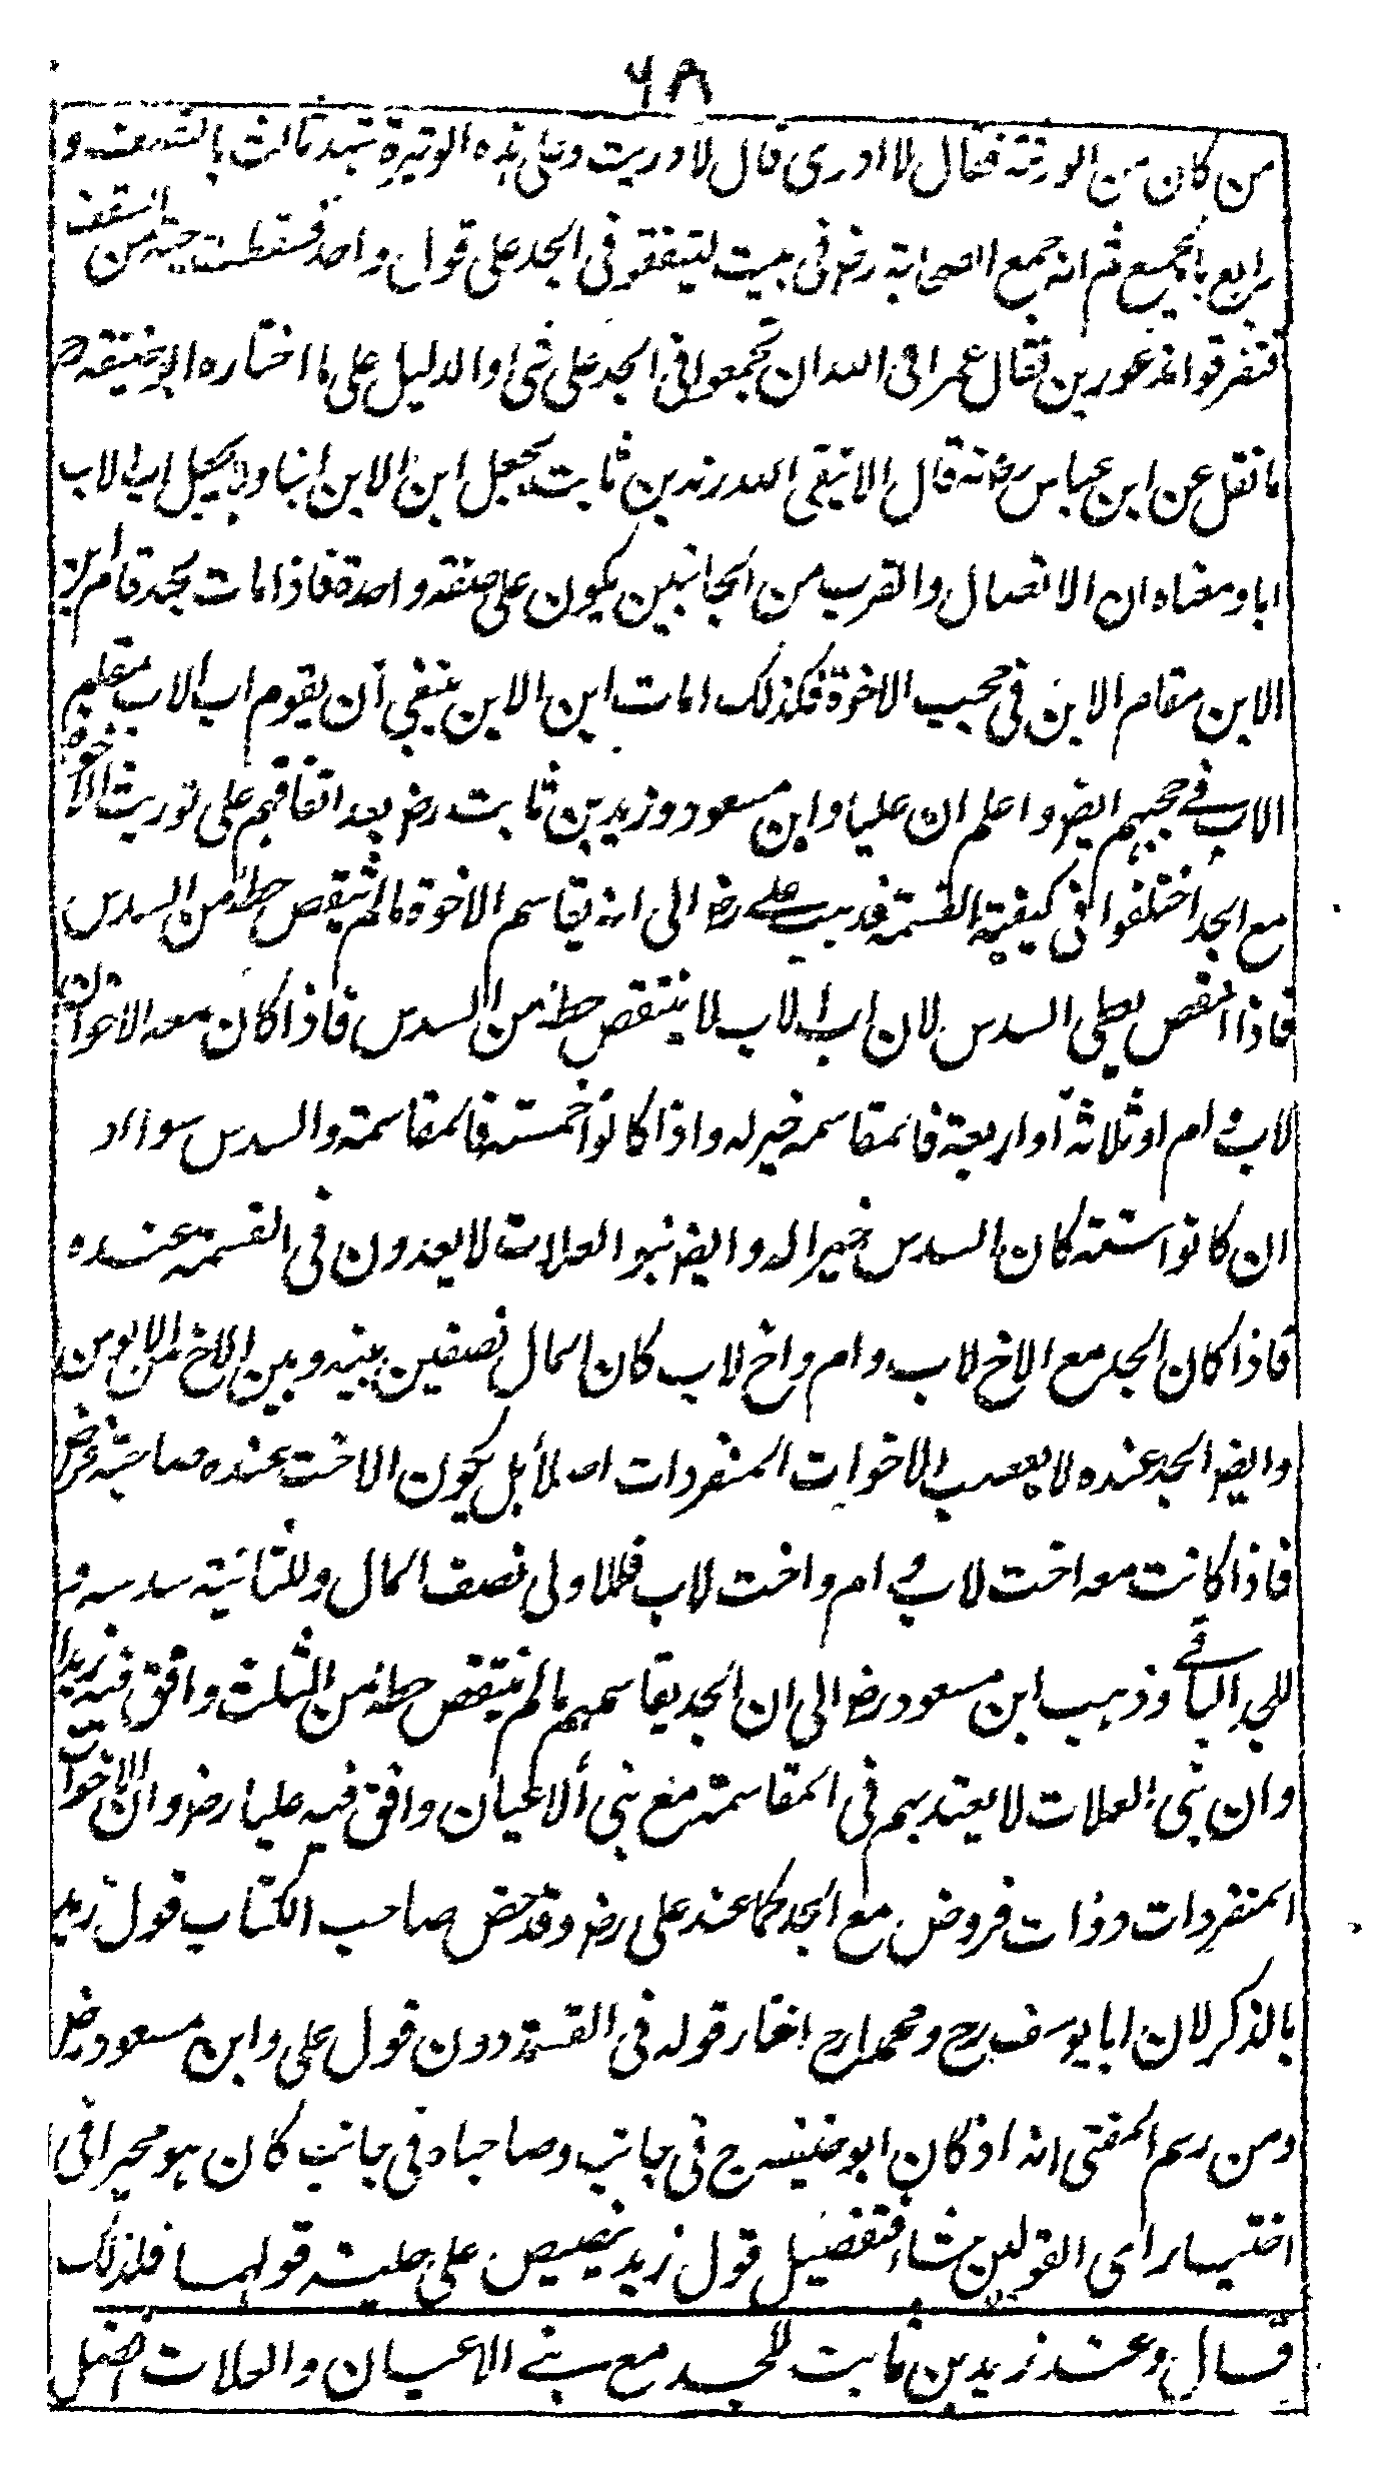 ٦٨
من كان من الورثة فقال لا ادرى قال لا دريت وعلى هذه الوتيرة شهد ثالث بالنصف و
رابع بالجميع ثم انه جمع الصحابة رض فى بيت ليتفقو فى الجد على قول واحد فسقطت حية من السقف
فتفرقوا مذعورين فقال عمر ابى الله ان تجمعوا فى الجد على شئ والدليل على ما اختاره ابو حنيفه رح
ما نقل عن ابن عباس رض انه قال الا يتقى الله زيد بن ثابت يجعل ابن الابن ابنا ولا يجعل اب الاب
ابا ومعناه ان الاتصال والقرب من الجانبين يكون على صفة واحدة فاذا مات الجد قام ابن
الابن مقام الابن فى حجب الاخوة فكذلك اذا مات ابن الابن ينبغى ان يقوم اب الاب مقام
الاب فے حجبهم ايضا واعلم ان عليا وابن مسعود وزيد بن ثابت رض بعد اتفاقهم على توريث الاخوة
مع الجد اختلفوا فى كيفية القسمة فذهب علے رض الى انه يقاسم الاخوة مالم ينتقص حظه من السدس
فاذا انتقص يعطى السدس لان اب الاب لا ينتقص حظه من السدس فاذا كان معه الاخوان
لاب و ام او ثلاثة او اربعة فالمقاسمه خير له واذا كانوا خمسته فالمقاسمة والسدس سواء و
ان كانوا ستة كان السدس خيرا له وايضا بنو العلات لا يعدون فى القسمة عنده
فاذا كان الجد مع الاخ لاب وام واخ لاب كان المال نصفين بينه وبين الاخ من الابوين
وايضا الجد عنده لا يعصب الاخوات المنفردات اصلا بل يكون الاخت عنده صاحبة فرض
فاذا كانت معه اخت لاب و ام واخت لاب فللاولى نصف المال وللثانية سدسه و
للجد الباقے وذهب ابن مسعود رض الى ان الجد يقاسمهم مالم ينتقص حظه من الثلث وافق فيه زيدا
وان بنى العلات لا يعتد بهم فى المقاسمة مع بنى الاعيان وافق فيه عليا رض وان الاخوات
المنفردات ذوات فروض مع الجد كما عند على رض وقد خص صاحب الكتاب قول زيد
بالذكر لان ابا يوسف رح ومحمدا رح اختار قوله فى القسمة دون قول على وابن مسعود رض
ومن رسم المفتى انه اذ كان ابو حنيفه رح فى جانب وصاحباه فى جانب كان هو مخيرا فى
اختيار اى القولين شاء فتفضيل قول زيد تنصيص على قولهما فلذلك
قال وعند زيد بن ثابت للجد مع بنے الاعيان والعلات افضل